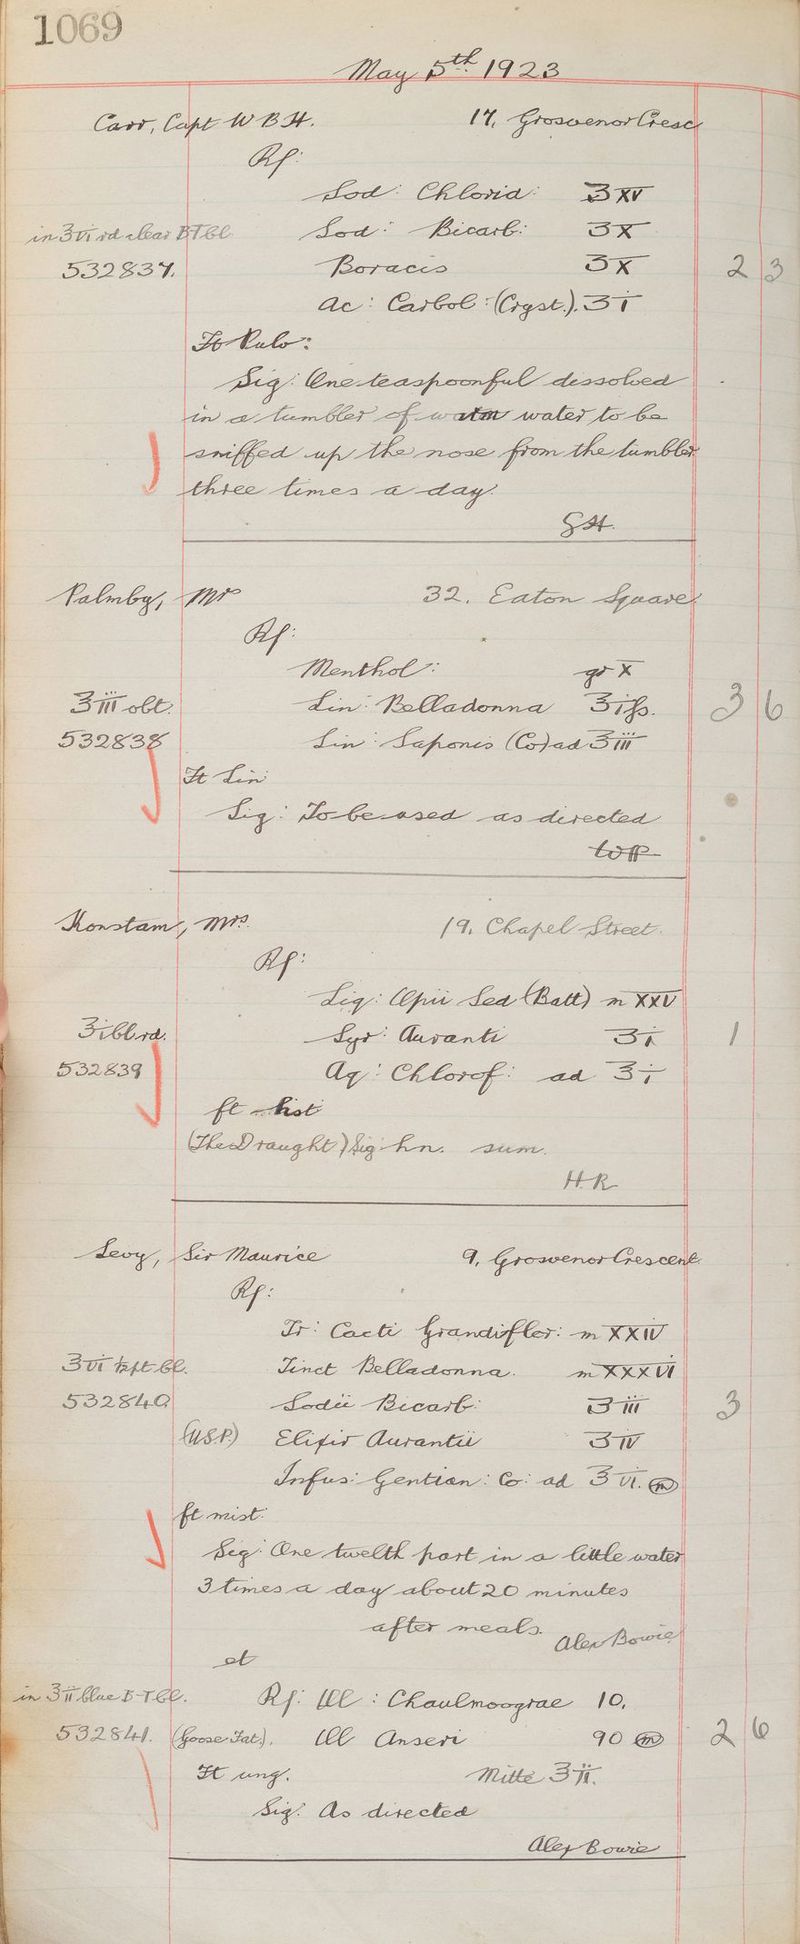 1069
May 5th 1923
Carr, Capt W B H. 17, Grosvenor Cresc
Rp:
Sod: Chlorid: ʒ XV
in ℥vi rd clear BTbl Sod: Bicarb: ʒ X
532837. Boracis ʒ X 2 3
Ac: Carbol: (Cryst.). ʒ i
Ft Pulv:
Sig: One teaspoonful dissolved
in a tumbler of warm water to be
sniffed up the nose from the tumbler
three times a day.
G H.
Palmby, Mrs 32. Eaton Square
Rp:
Menthol: gr X
℥iii obt. Lin: Belladonna ℥iſs. 3 6
532838 Lin: Saponis (Co) ad ℥iii
Ft Lin
Sig: To be used as directed
Konstam, Mrs. 19, Chapel Street.
Rp:
Liq: Opii Sed (Batt) m XXV
℥i bl rd. Syr: Auranti ʒ i 1
532839 Aq: Chlorof: ad ℥ i
ft hst
(The Draught) Sig: h.n. sum.
H.R
Levy, Sir Maurice 9, Grosvenor Crescent
Rp:
Tr: Cacti Grandifler: m XXIV
℥vi pt bl. Tinct Belladonna. m XXXVI
532840 Sodii Bicarb: ʒ iii 3
(U.S.P.) Elixir Aurantii ʒ iv
Infus: Gentian: Co: ad ℥ vi. (m)
ft mist:
Sig: One twelth part in a little water
3 times a day about 20 minutes
after meals. Alex Bowie
et
in ℥ii blue B-T bl. Rp: Ol: Chaulmoograe 10.
532841. (Goose Fat). Ol Anseri 90 (m) 2 6
Ft ung. Mitte ℥ii.
Sig: As directed
Alex Bowie